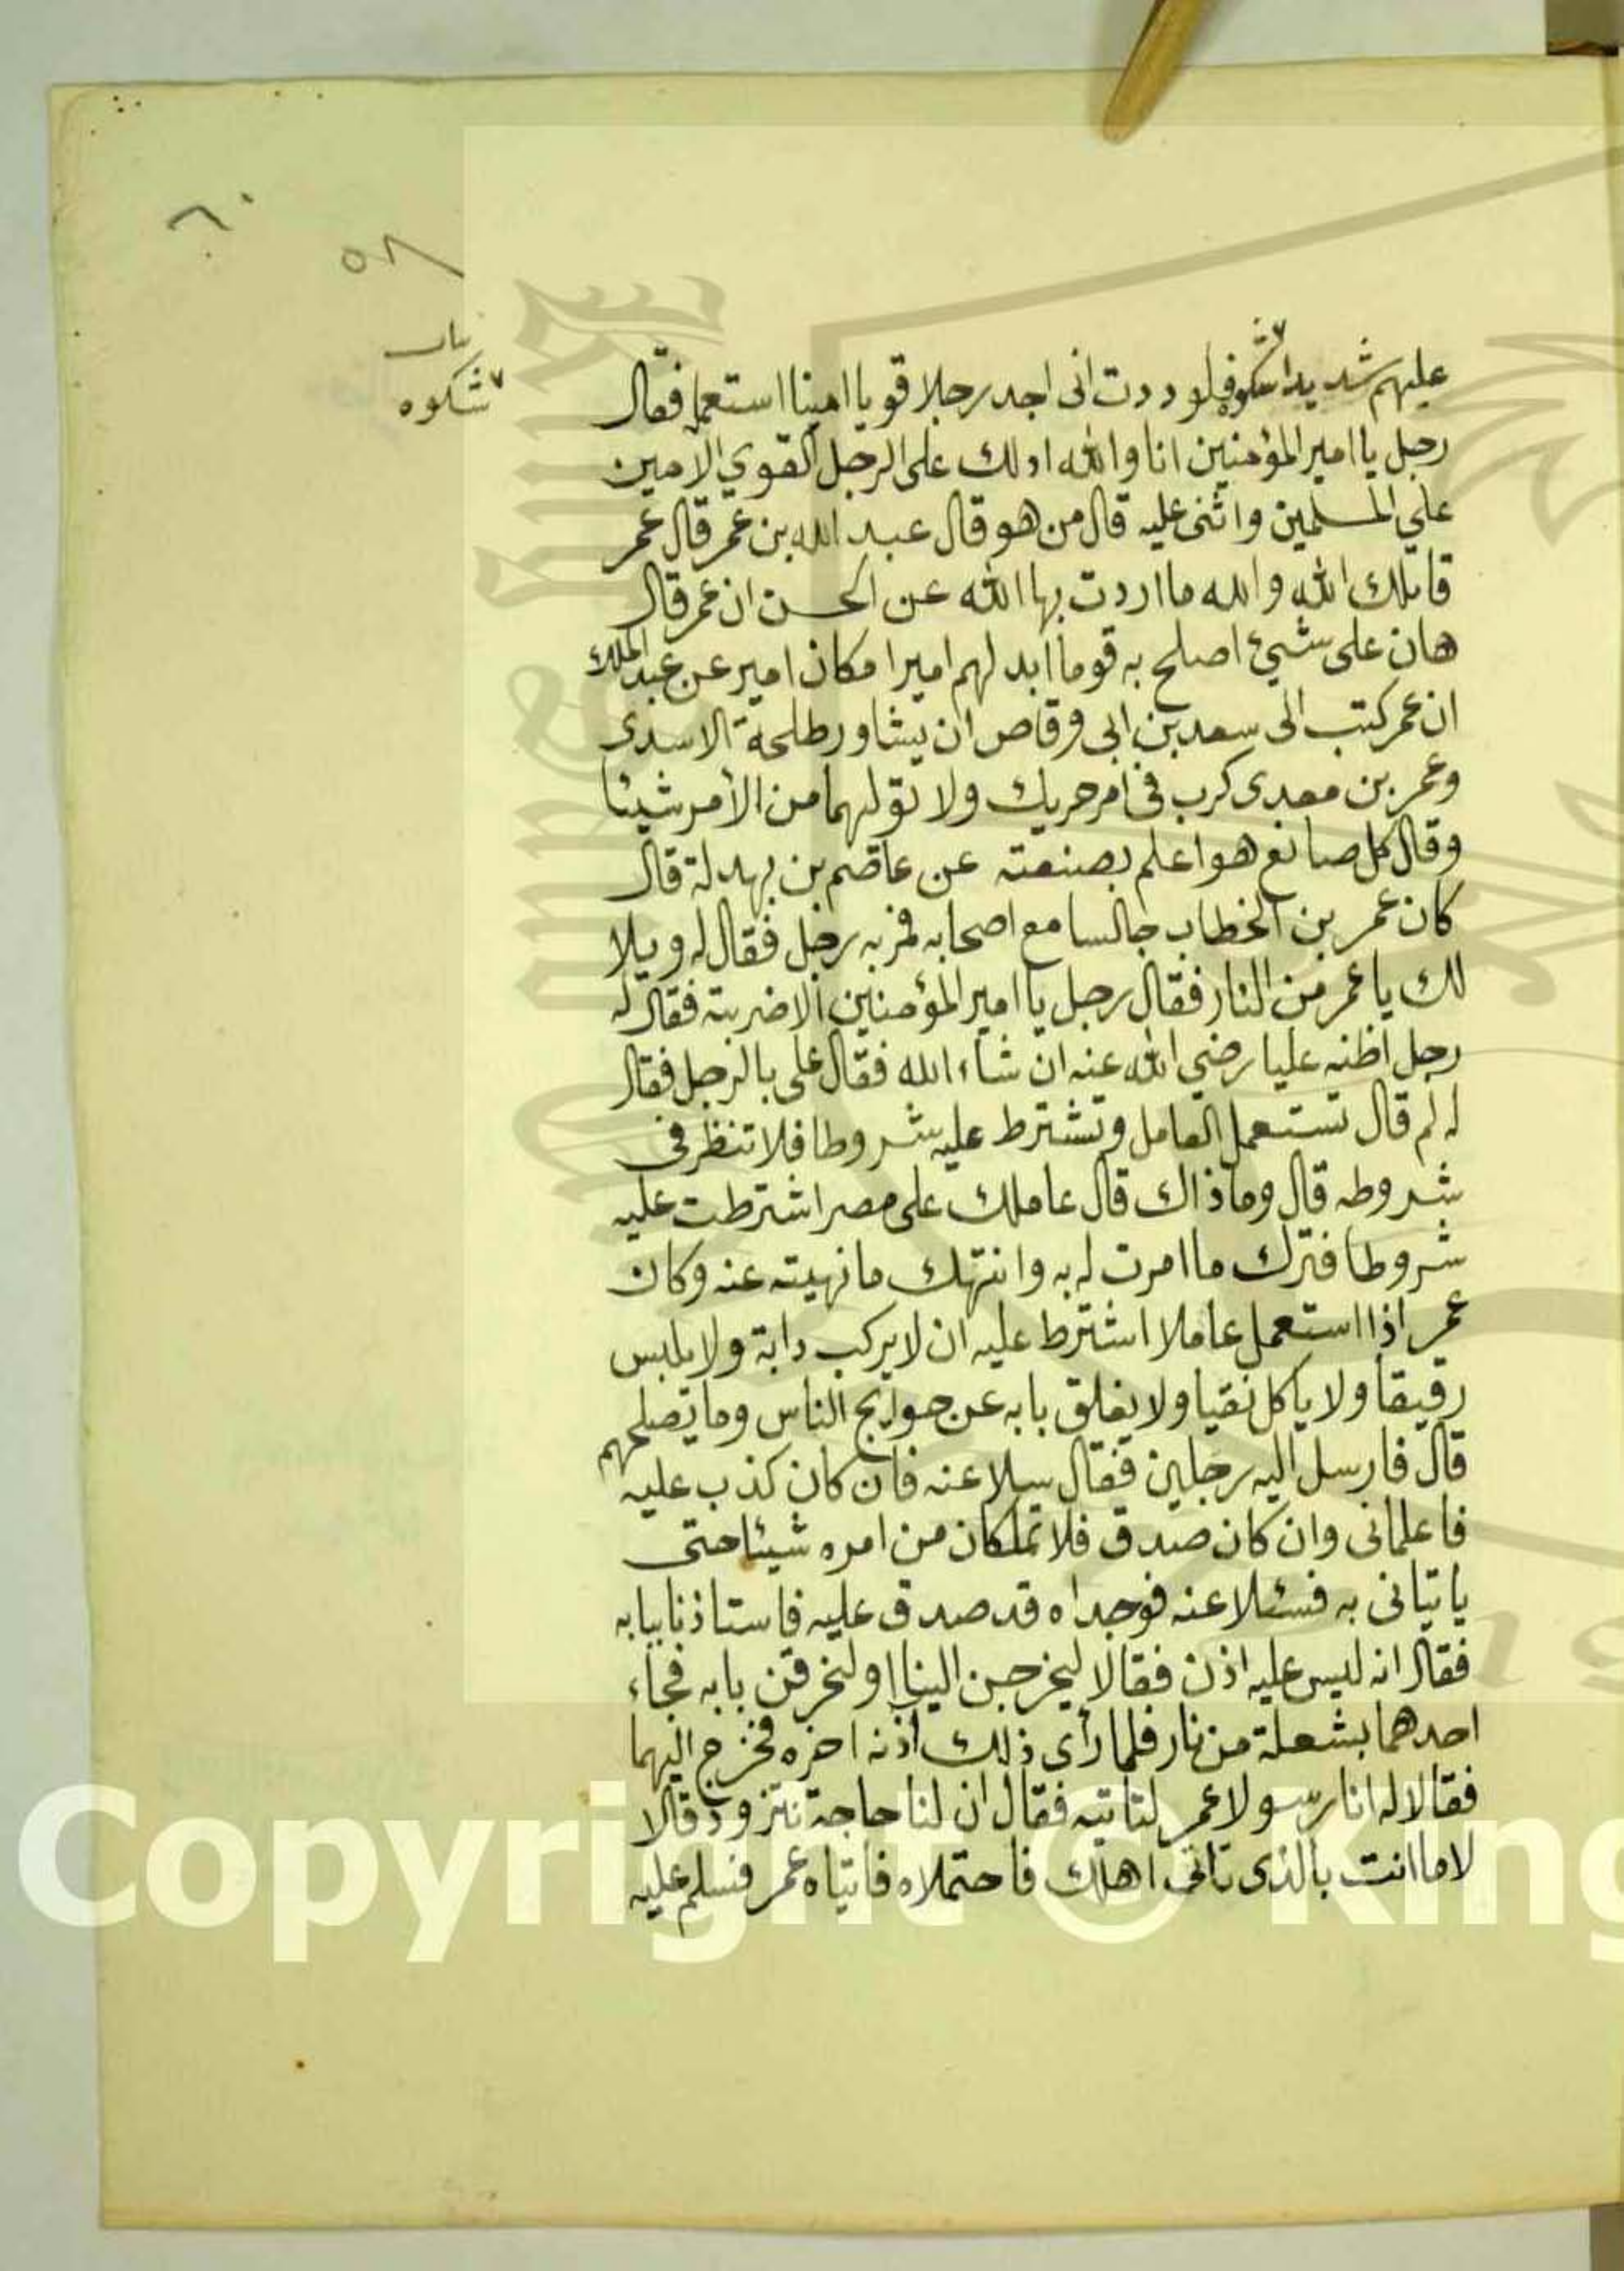 ٦٠
٥٨
بيان
شكوه
عليهم شديدا شكوه فلوددت انى اجد رجلا قويا امينا استعمله فقال
رجل يا امير المؤمنين انا والله ادلك على الرجل القوي الامين
علي المسلمين واثنى عليه قال من هو قال عبد الله بن عمر قال عمر
قاتلك الله والله ما اردت بها الله عن الحسن ان عمر قال
هان على شيئ اصلح به قوما ابدلهم اميرا مكان امير عن عبد الملك
ان عمر كتب الى سعد بن ابى وقاص ان يشاور طلحة الاسدى
وعمر بن معدى كرب فى امر حربك ولا تولهما من الأمر شيئا
وقال كل صانع هو اعلم بصنعته عن عاصم بن بهدلة قال
كان عمر بن الخطاب جالسا مع اصحابه فمر به رجل فقال له ويلا
لك يا عمر من النار فقال رجل يا امير المؤمنين الا ضربته فقال له
رجل اظنه عليا رضي الله عنه ان شاء الله فقال على بالرجل فقال
له لم قال تستعمل العامل وتشترط عليه شروطا فلا تنظر فى
شروطه قال وما ذاك قال عاملك على مصر اشترطت عليه
شروطا فترك ما امرت له به وانتهك ما نهيته عنه وكان
عمر اذا استعمل عاملا اشترط عليه ان لا يركب دابة ولا يلبس
رقيقا ولا ياكل نقيا ولا يغلق بابه عن حوايج الناس وما يصلحهم
قال فارسل اليه رجلين فقال سلا عنه فان كان كذب عليه
فاعلمانى وان كان صدق فلا تملكان من امره شيئا حتى
ياتيانى به فسئلا عنه فوجداه قد صدق عليه فاستاذنا ببابه
فقال انه ليس عليه اذن فقالا ليخرجن الينا او لنحرقن بابه فجاء
احدهما بشعلة من نار فلما رأى ذلك اذنه اخبره فخرج اليهما
فقالا له انا رسولا عمر لتاتيه فقال ان لنا حاجة نتزود قالا
لا ما انت بالذى تاتى اهلك فاحتملاه فاتياه عمر فسلم عليه
Copyright © King